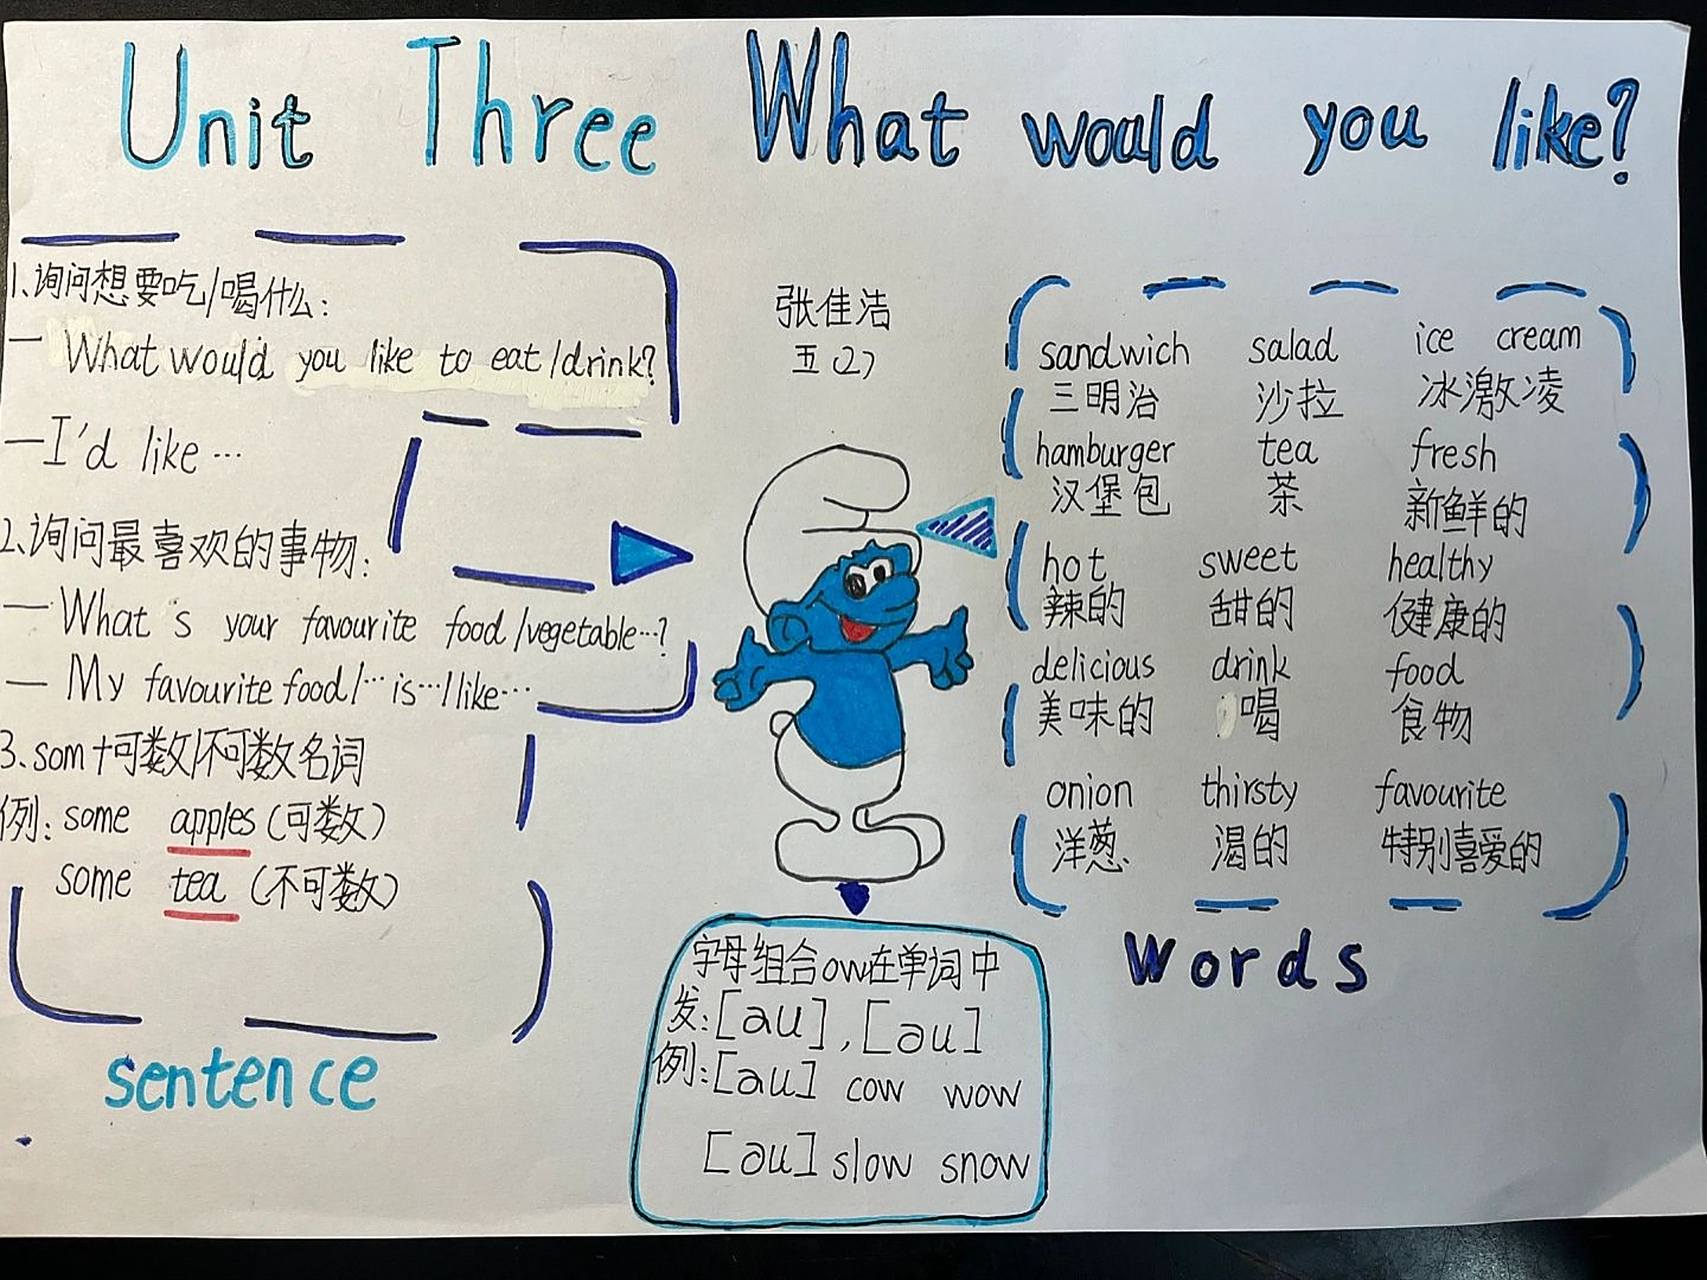 Unit Three What would you like?
1、询问想要吃/喝什么:
— What would you like to eat/drink?
—I'd like …
2、询问最喜欢的事物:
— What's your favourite food/vegetable…?
— My favourite food/…is…/like…
3、som+可数/不可数名词
例: some apples (可数)
some tea (不可数)
sentence
张佳洁
五(2)
字母组合ow在单词中
发:[au],[əu]
例:[au] cow wow
[əu] slow snow
sandwich salad ice cream
三明治 沙拉 冰激凌
hamburger tea fresh
汉堡包 茶 新鲜的
hot sweet healthy
辣的 甜的 健康的
delicious drink food
美味的 喝 食物
onion thirsty favourite
洋葱 渴的 特别喜爱的
Words